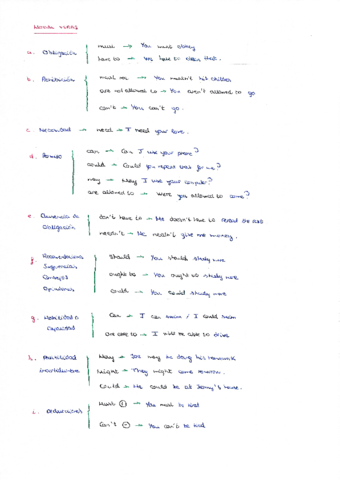 MODAL VERBS
a. Obligación must → You must obey
have to → You have to clean that.
b. Prohibición must not → You mustn't hit children
are not allowed to → You aren't allowed to go
can't → You can't go.
c. Necesidad → need → I need your love.
d. Permiso can → Can I use your phone?
could → Could you repeat that for me?
may → May I use your computer?
are allowed to → Were you allowed to come?
e. Ausencia de don't have to → He doesn't have to
Obligación needn't → He needn't give me money.
f. Recomendaciones Should → You should study more
Sugerencias
Consejos ought to → You ought to study more
Opiniones could → You could study more
g. Habilidad o Can → I can swim / I could swim
capacidad are able to → I will be able to drive
h. Posibilidad May → may be doing his homework
Incertidumbre Might → They might come tomorrow.
Could → He could be at Jenny's house.
i. Deducciones Must (+) → You must be
Can't (-) → You can't be